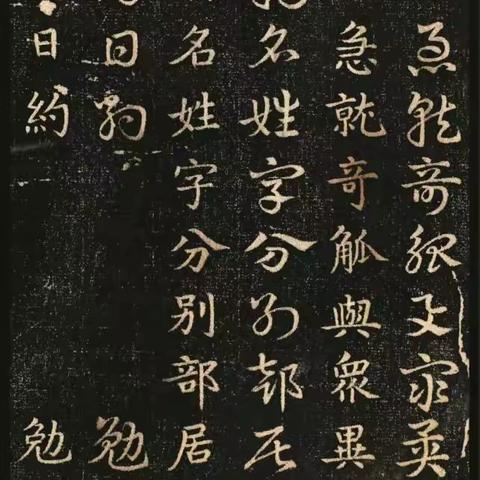 急就奇觚與衆異
急就奇觚與衆異
名姓字分别部居
名姓字分别部居
日約 勉
日約 勉